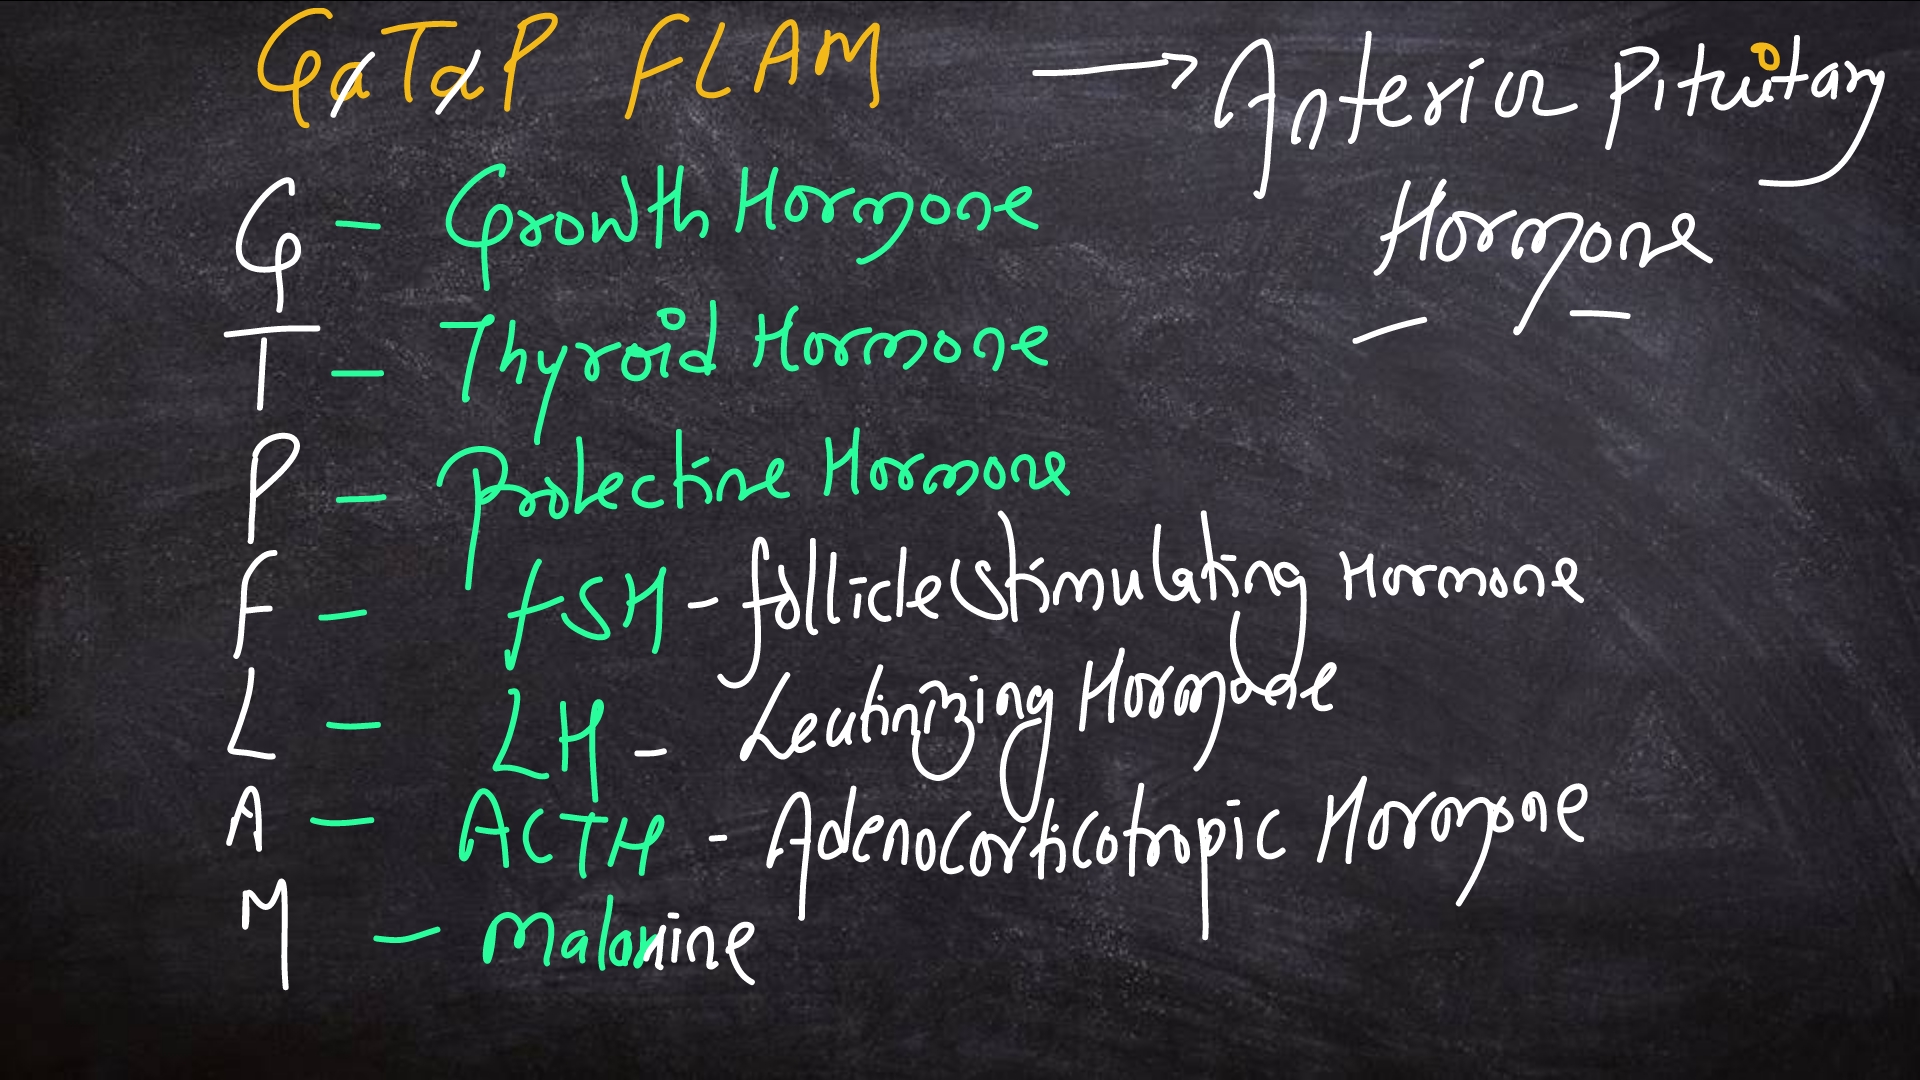 GaTaP FLAM → Anterior Pituitary
Hormone
G - Growth Hormone
T - Thyroid Hormone
P - Protective Hormone
F - FSH - follicle stimulating Hormone
L - LH - Leutinizing Hormone
A - ACTH - Adenocorticotropic Hormone
M - Malonine